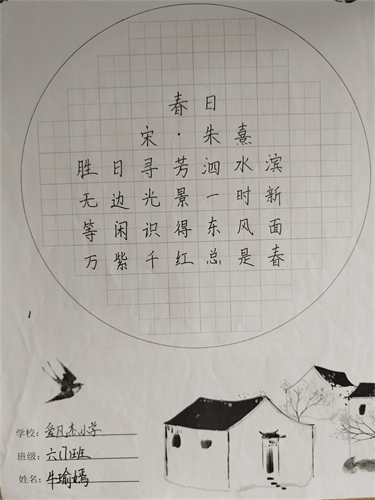 春日
宋·朱熹
胜日寻芳泗水滨
无边光景一时新
等闲识得东风面
万紫千红总是春
学校：小学
班级：六(1)班
姓名：牛瑜嫣